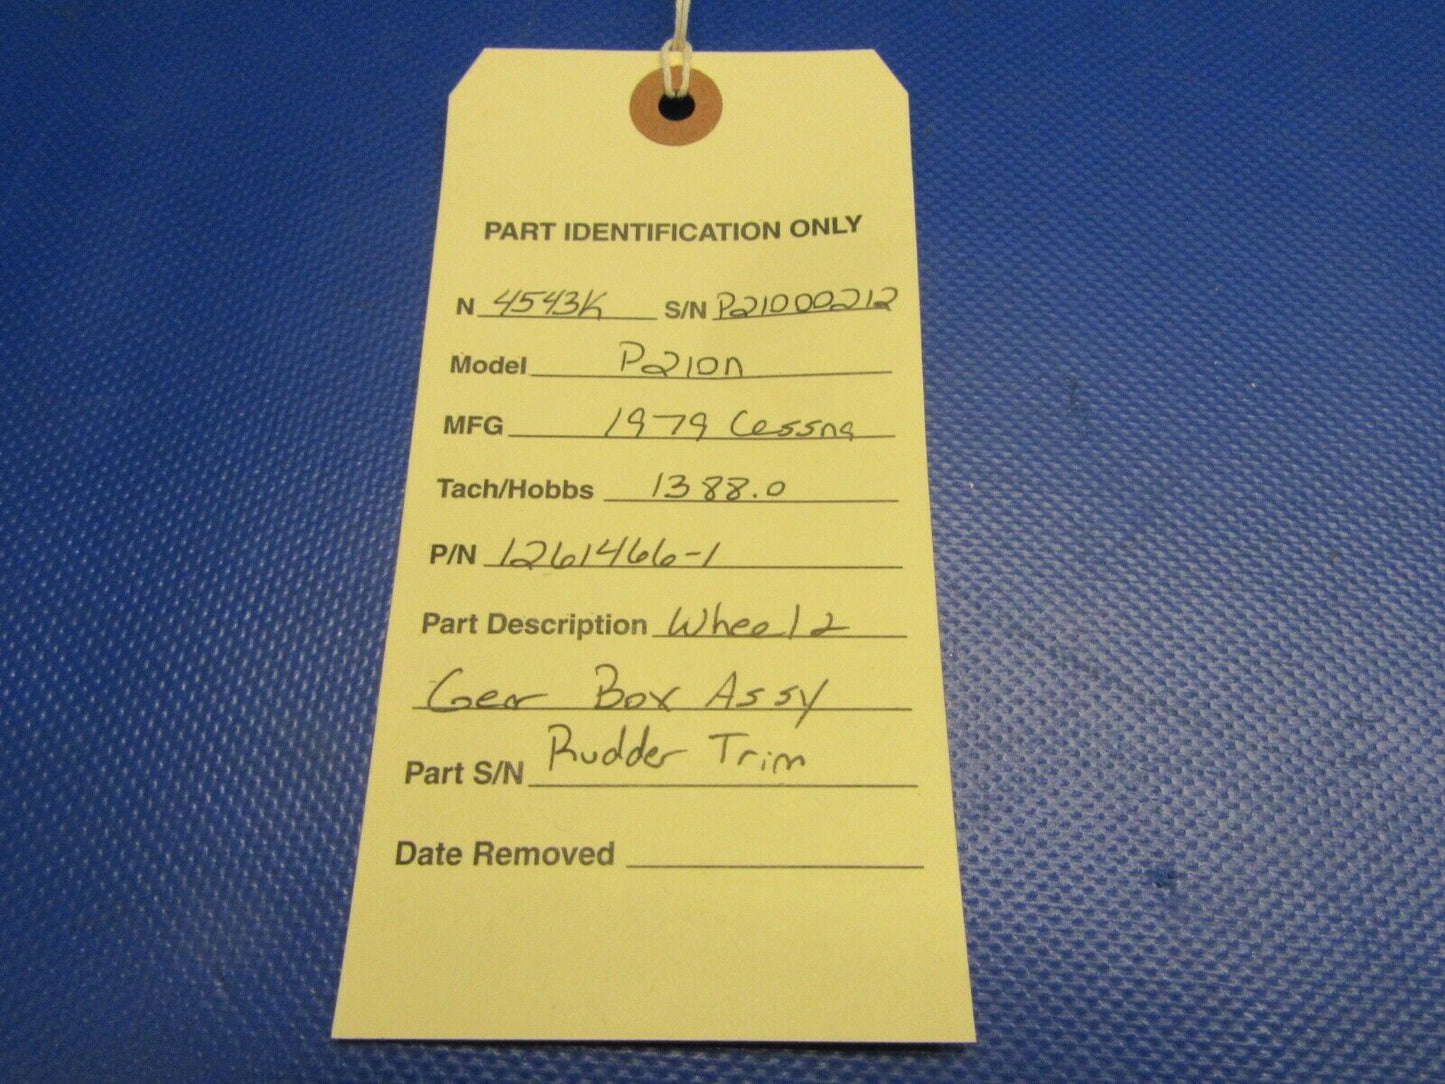 PART IDENTIFICATION ONLY
N 4543K S/N P21000212
Model P210n
MFG 1979 Cessna
Tach/Hobbs 1388.0
P/N 1261466-1
Part Description Wheel &
Gear Box Assy
Part S/N Rudder Trim
Date Removed